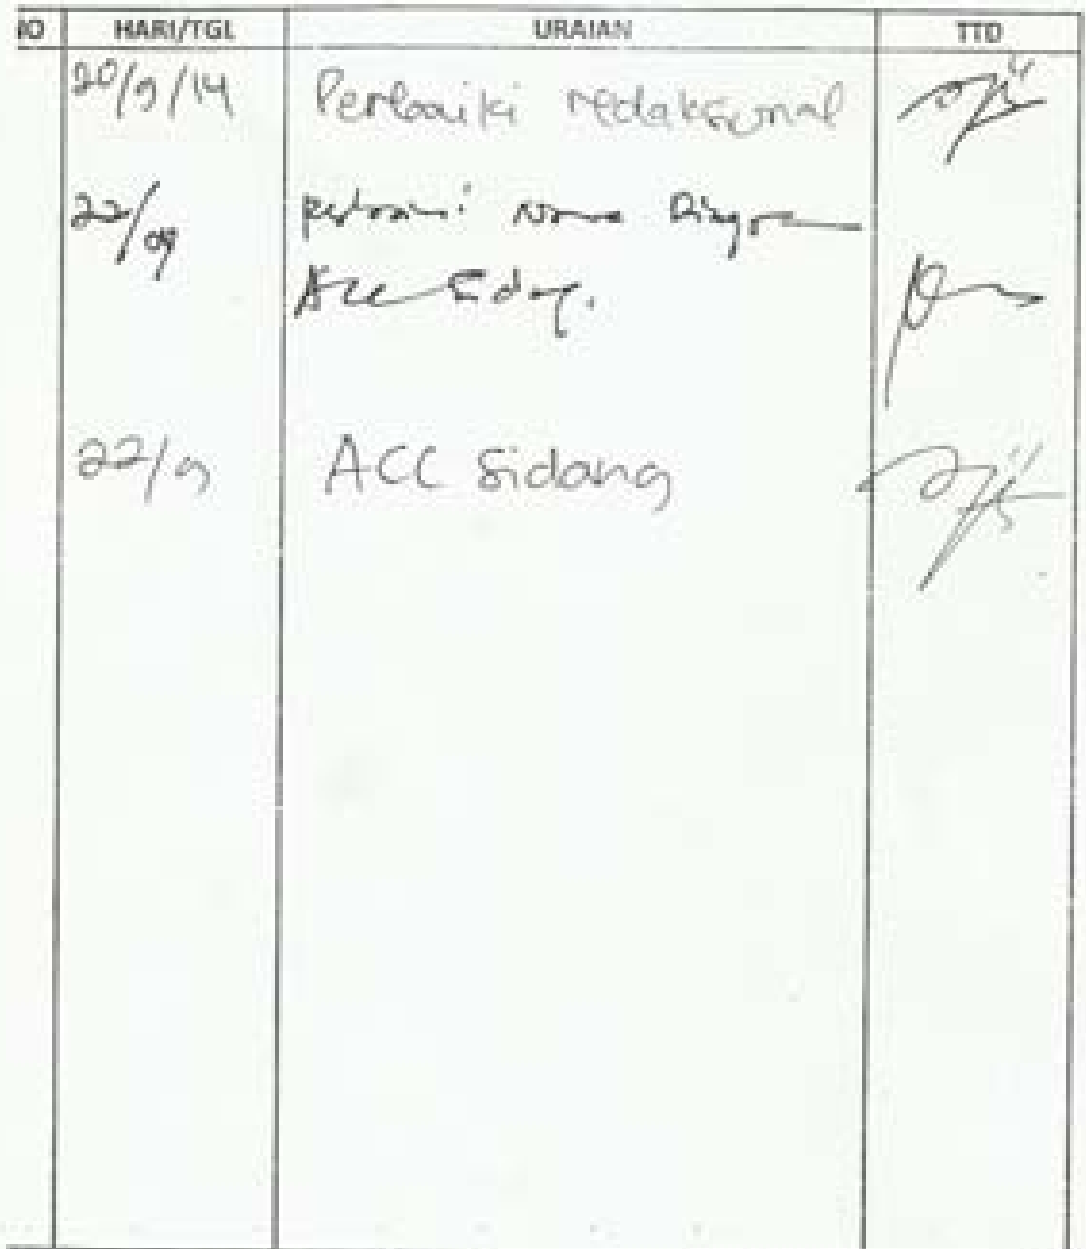 NO HARI/TGL URAIAN TTD
20/9/14 Perbaiki redaksional
22/09 Nama
Acc Sidang.
22/9 ACC Sidang